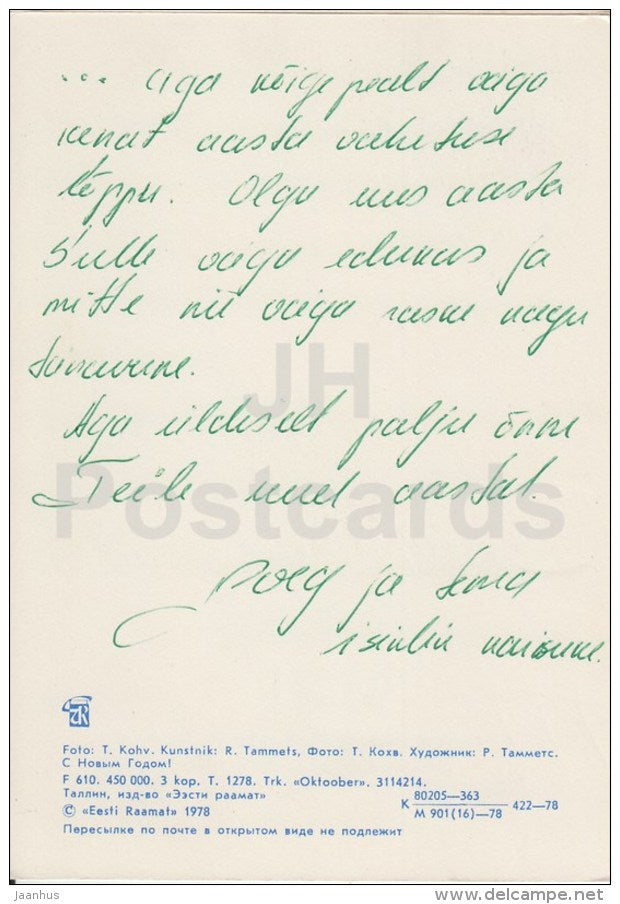 ... aga kõigepealt väga
kenat aasta vahetuse
lõppu. Olgu uus aasta
Sulle väga edukas ja
mitte nii väga raske nagu
tänavune.
Aga üldiselt palju õnne
Teile uuel aastal.
poeg ja tema
isiklik naisuke.
JH
Postcards
Foto: T. Kohv. Kunstnik: R. Tammets, Фото: Т. Кохв. Художник: Р. Тамметс.
С Новым Годом!
F 610. 450 000. 3 kop. T. 1278. Trk. «Oktoober». 3114214.
Таллин, изд-во «Ээсти раамат»
© «Eesti Raamat» 1978
К 80205—363 / М 901(16)—78 422—78
Пересылке по почте в открытом виде не подлежит
Jaanhus
www.delcampe.net